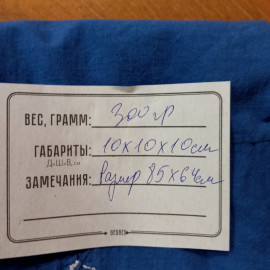 ВЕС, ГРАММ: 300 гр
ГАБАРИТЫ: 10х10х10см
ДхШхВ, см
ЗАМЕЧАНИЯ: Размер 85х64см